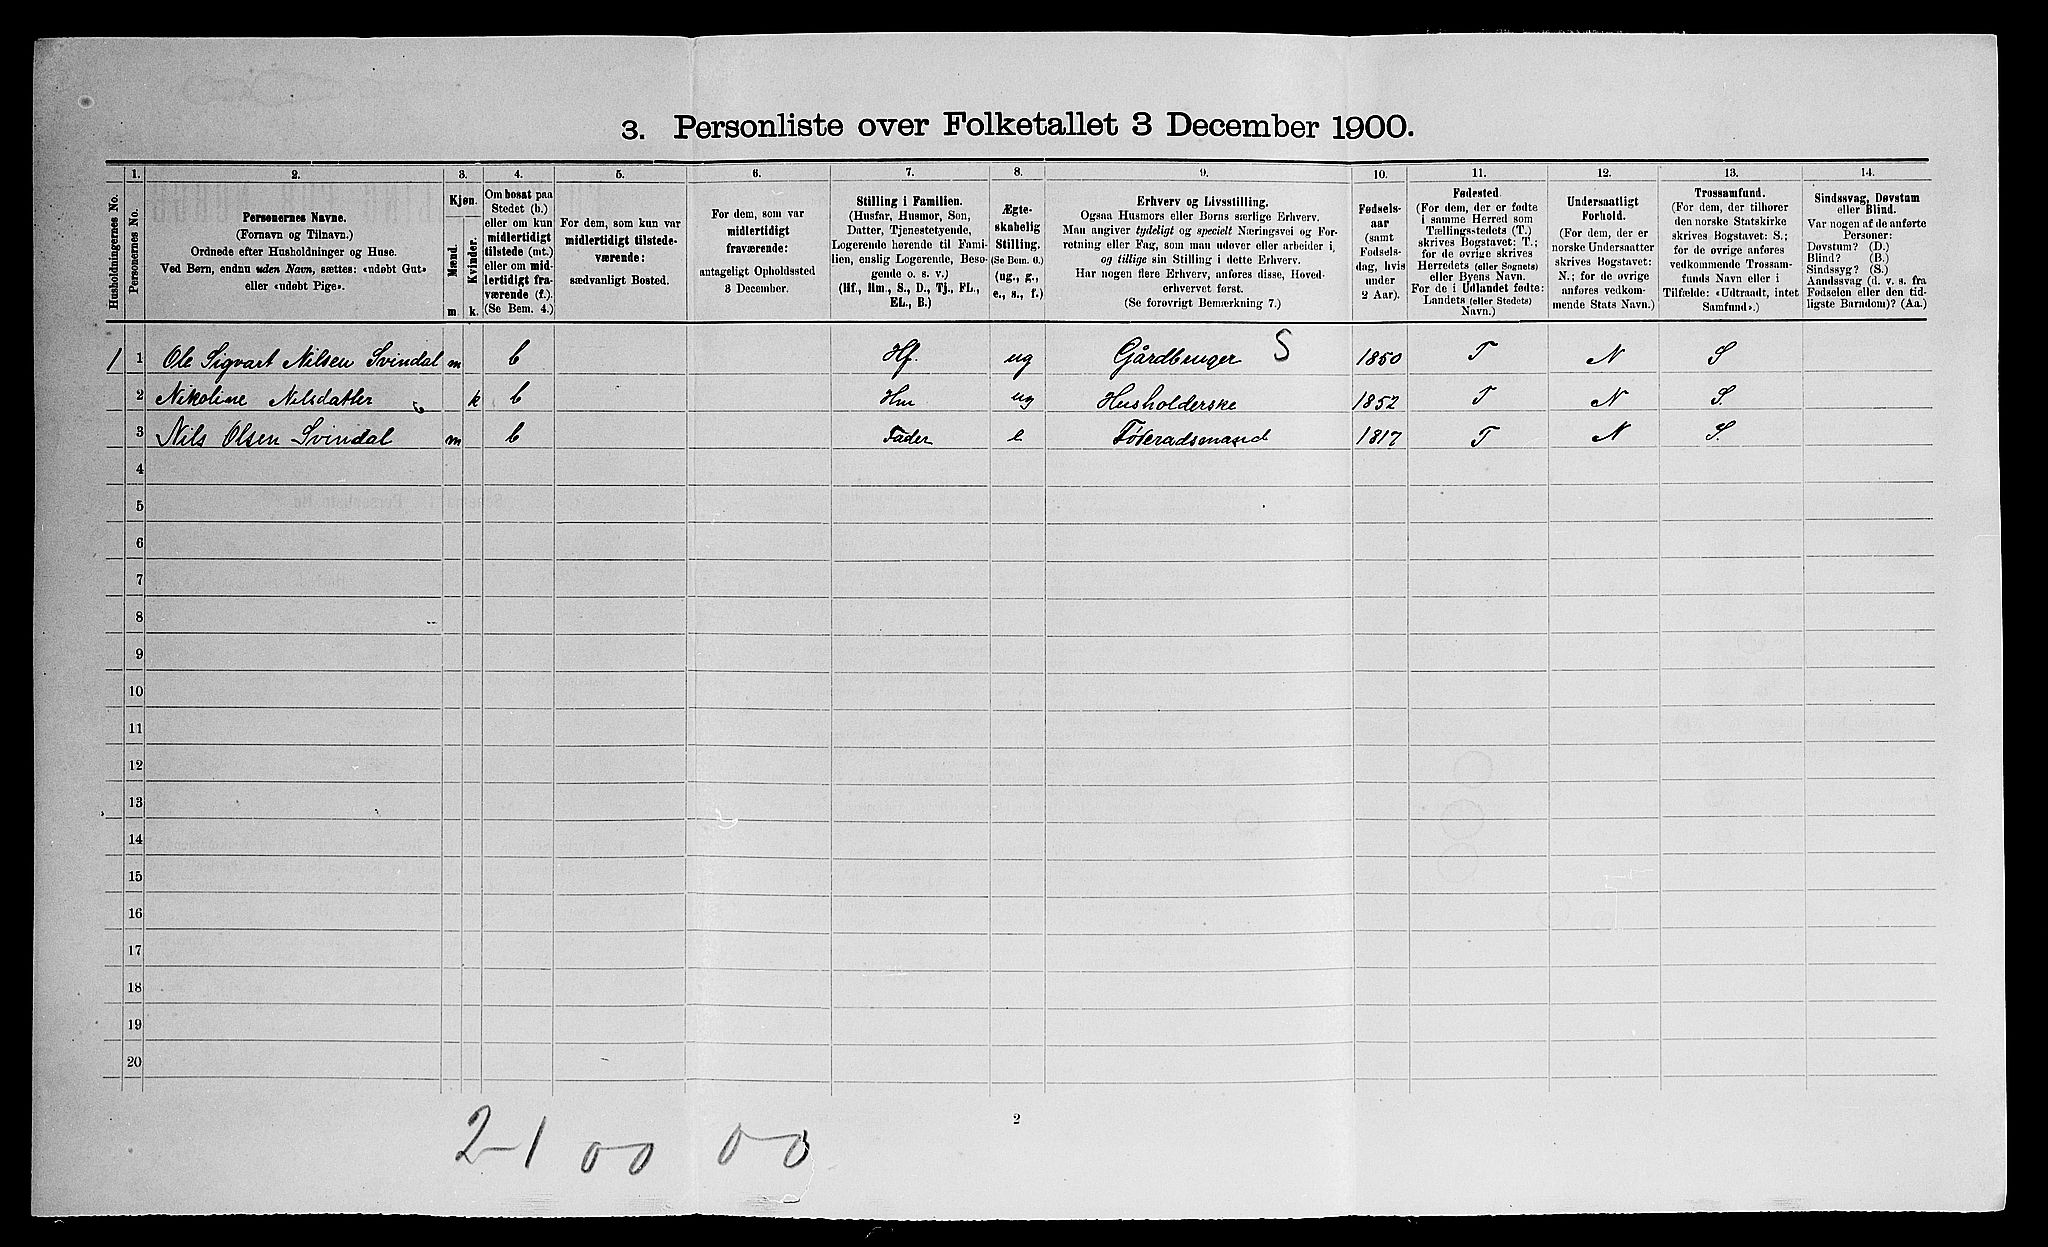 3. Personliste over Folketallet 3 December 1900.
1. 2. 3. 4. 5. 6. 7. 8. 9. 10. 11. 12. 13. 14.
Husholdningernes No.
Personernes No.
Personernes Navne.
(Fornavn og Tilnavn.)
Ordnede efter Husholdninger og Huse.
Ved Børn, endnu uden Navn, sættes: «udøbt Gut»
eller «udøbt Pige».
Kjøn.
Mænd.
Kvinder.
m. k.
Om bosat paa
Stedet (b.)
eller om kun
midlertidigt
tilstede (mt.)
eller om mid-
lertidigt fra-
værende (f.).
(Se Bem. 4.)
For dem, som kun var
midlertidigt tilstede-
værende:
sædvanligt Bosted.
For dem, som var
midlertidigt
fraværende:
antageligt Opholdssted
3 December.
Stilling i Familien.
(Husfar, Husmor, Søn,
Datter, Tjenestetyende,
Logerende hørende til Fami-
lien, enslig Logerende, Besø-
gende o. s. v.)
(Hf., Hm., S., D., Tj., FL.,
EL., B.)
Ægte-
skabelig
Stilling.
(Se Bem. 6.)
(ug., g.,
e., s., f.)
Erhverv og Livsstilling.
Ogsaa Husmors eller Børns særlige Erhverv.
Man angiver tydeligt og specielt Næringsvei og For-
retning eller Fag, som man udøver eller arbeider i,
og tillige sin Stilling i dette Erhverv.
Har nogen flere Erhverv, anføres disse, Hoved-
erhvervet først.
(Se forøvrigt Bemærkning 7.)
Fødsels-
aar
(samt
Fødsels-
dag, hvis
under
2 Aar).
Fødested.
(For dem, der er fødte
i samme Herred som
Tællings-stedets (T.)
skrives Bogstavet: T.;
for de øvrige skrives
Herredets (eller Sognets)
eller Byens Navn.
For de i Udlandet fødte:
Landets (eller Stedets)
Navn.)
Undersaatligt
Forhold.
(For dem, der er
norske Undersaatter
skrives Bogstavet:
N.; for de øvrige
anføres vedkom-
mende Stats Navn.)
Trossamfund.
(For dem, der tilhører
den norske Statskirke
skrives Bogstavet: S.;
for de øvrige anføres
vedkommende Trossam-
funds Navn eller i
Tilfælde: «Udtraadt, intet
Samfund».)
Sindssvag, Døvstum
eller Blind.
Var nogen af de anførte
Personer:
Døvstum? (D.)
Blind? (B.)
Sindssyg? (S.)
Aandssvag (d. v. s. fra
Fødselen eller den tid-
ligste Barndom)? (Aa.)
1 1 Ole Sigvart Nilsen Svindal m b Hf. ug Gårdbruger S 1850 T N S
2 Nikoline Nilsdatter k b Hm ug Husholderske 1852 T N S.
3 Nils Olsen Svindal m b Fader e Føderadsmand 1817 T N S.
4
5
6
7
8
9
10
11
12
13
14
15
16
17
18
19
20
2
2-1 0-0 0-0